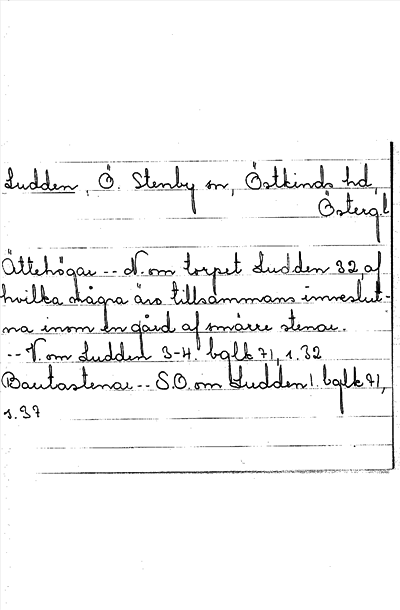 Ludden, Ö. Stenby sn, Östkinds hd,
Östergl
Ättehögar -- N. om torpet Ludden 32, af
hvilka några äro tillsammans inneslut-
na inom en gård af smärre stenar.
-- V. om Ludden 3-4. bglk 71, s. 32
Bautastenar -- S.O. om Ludden 1. bglk 71,
s. 37